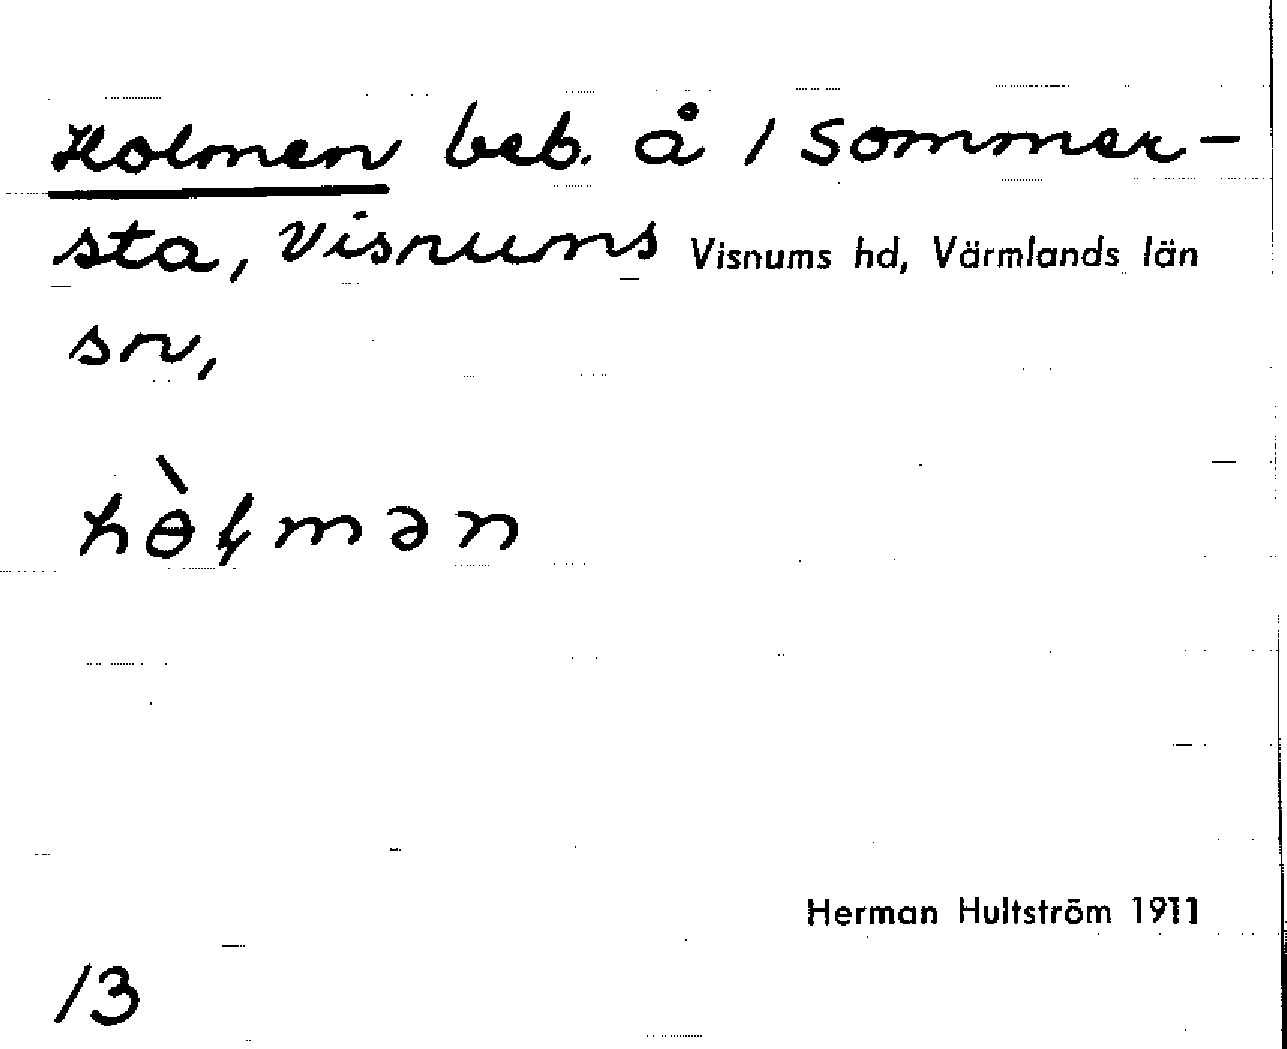 Holmen beb. å / Sommer-
sta, Visnums Visnums hd, Värmlands län
sn,
hɵ̀ɫmən
Herman Hultström 1911
13